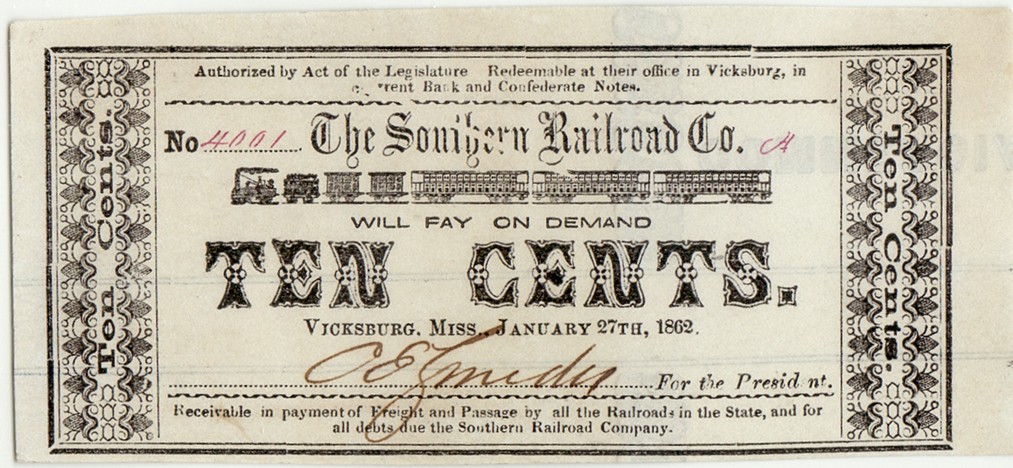 Authorized by Act of the Legislature Redeemable at their office in Vicksburg, in
Bank and Confederate Notes.
No 4001 The Southern Railroad Co. A
WILL PAY ON DEMAND
TEN CENTS.
VICKSBURG, MISS., JANUARY 27TH, 1862.
For the President.
Receivable in payment of Freight and Passage by all the Railroads in the State, and for
all debts due the Southern Railroad Company.
Ten Cents.
Ten Cents.